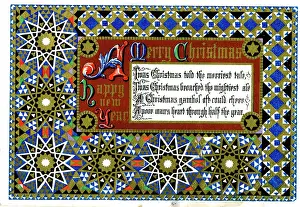 A Merry Christmas
Happy
new
Year
'Twas Christmas told the merriest tale,
'Twas Christmas broached the mightiest ale
A Christmas gambol oft could cheer
A poor man's heart through half the year.